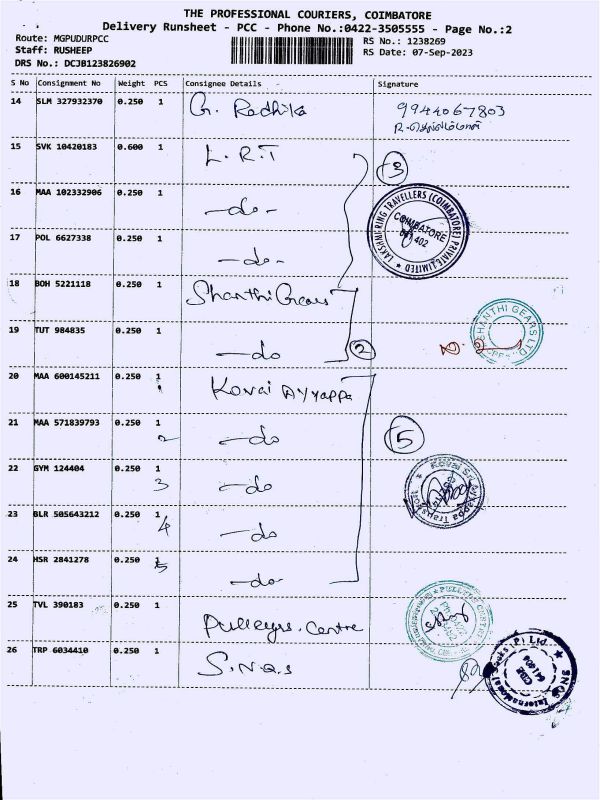 THE PROFESSIONAL COURIERS, COIMBATORE
Delivery Runsheet - PCC - Phone No.:0422-3505555 - Page No.:2
Route: MGPUDURPCC RS No.: 1238269
Staff: RUSHEEP RS Date: 07-Sep-2023
DRS No.: DCJB123826902
S No Consignment No Weight PCS Consignee Details Signature
14 SLM 327932370 0.250 1 G. Radhika 9944067803
15 SVK 10420183 0.600 1 L.R.T 3
16 MAA 102332906 0.250 1 -do-
LAKSHMI RING TRAVELLERS (COIMBATORE) PRIVATE LIMITED
COIMBATORE
641 402
17 POL 6627338 0.250 1 -do-
18 BOH 5221118 0.250 1 Shanthi Gears
SHANTHI GEARS LTD
19 TUT 984835 0.250 1 -do 2
20 MAA 600145211 0.250 1 Kovai Ayyappa
1
21 MAA 571839793 0.250 1 -do 5
2
22 GYM 124404 0.250 1 -do
3
Kovai Sri Ayyappa
23 BLR 505643212 0.250 1 -do
4
24 HSR 2841278 0.250 1 -do-
5
25 TVL 390183 0.250 1 Pulleys. Centre
26 TRP 6034410 0.250 1 S.N.Q.S
SNQS International (P) Ltd